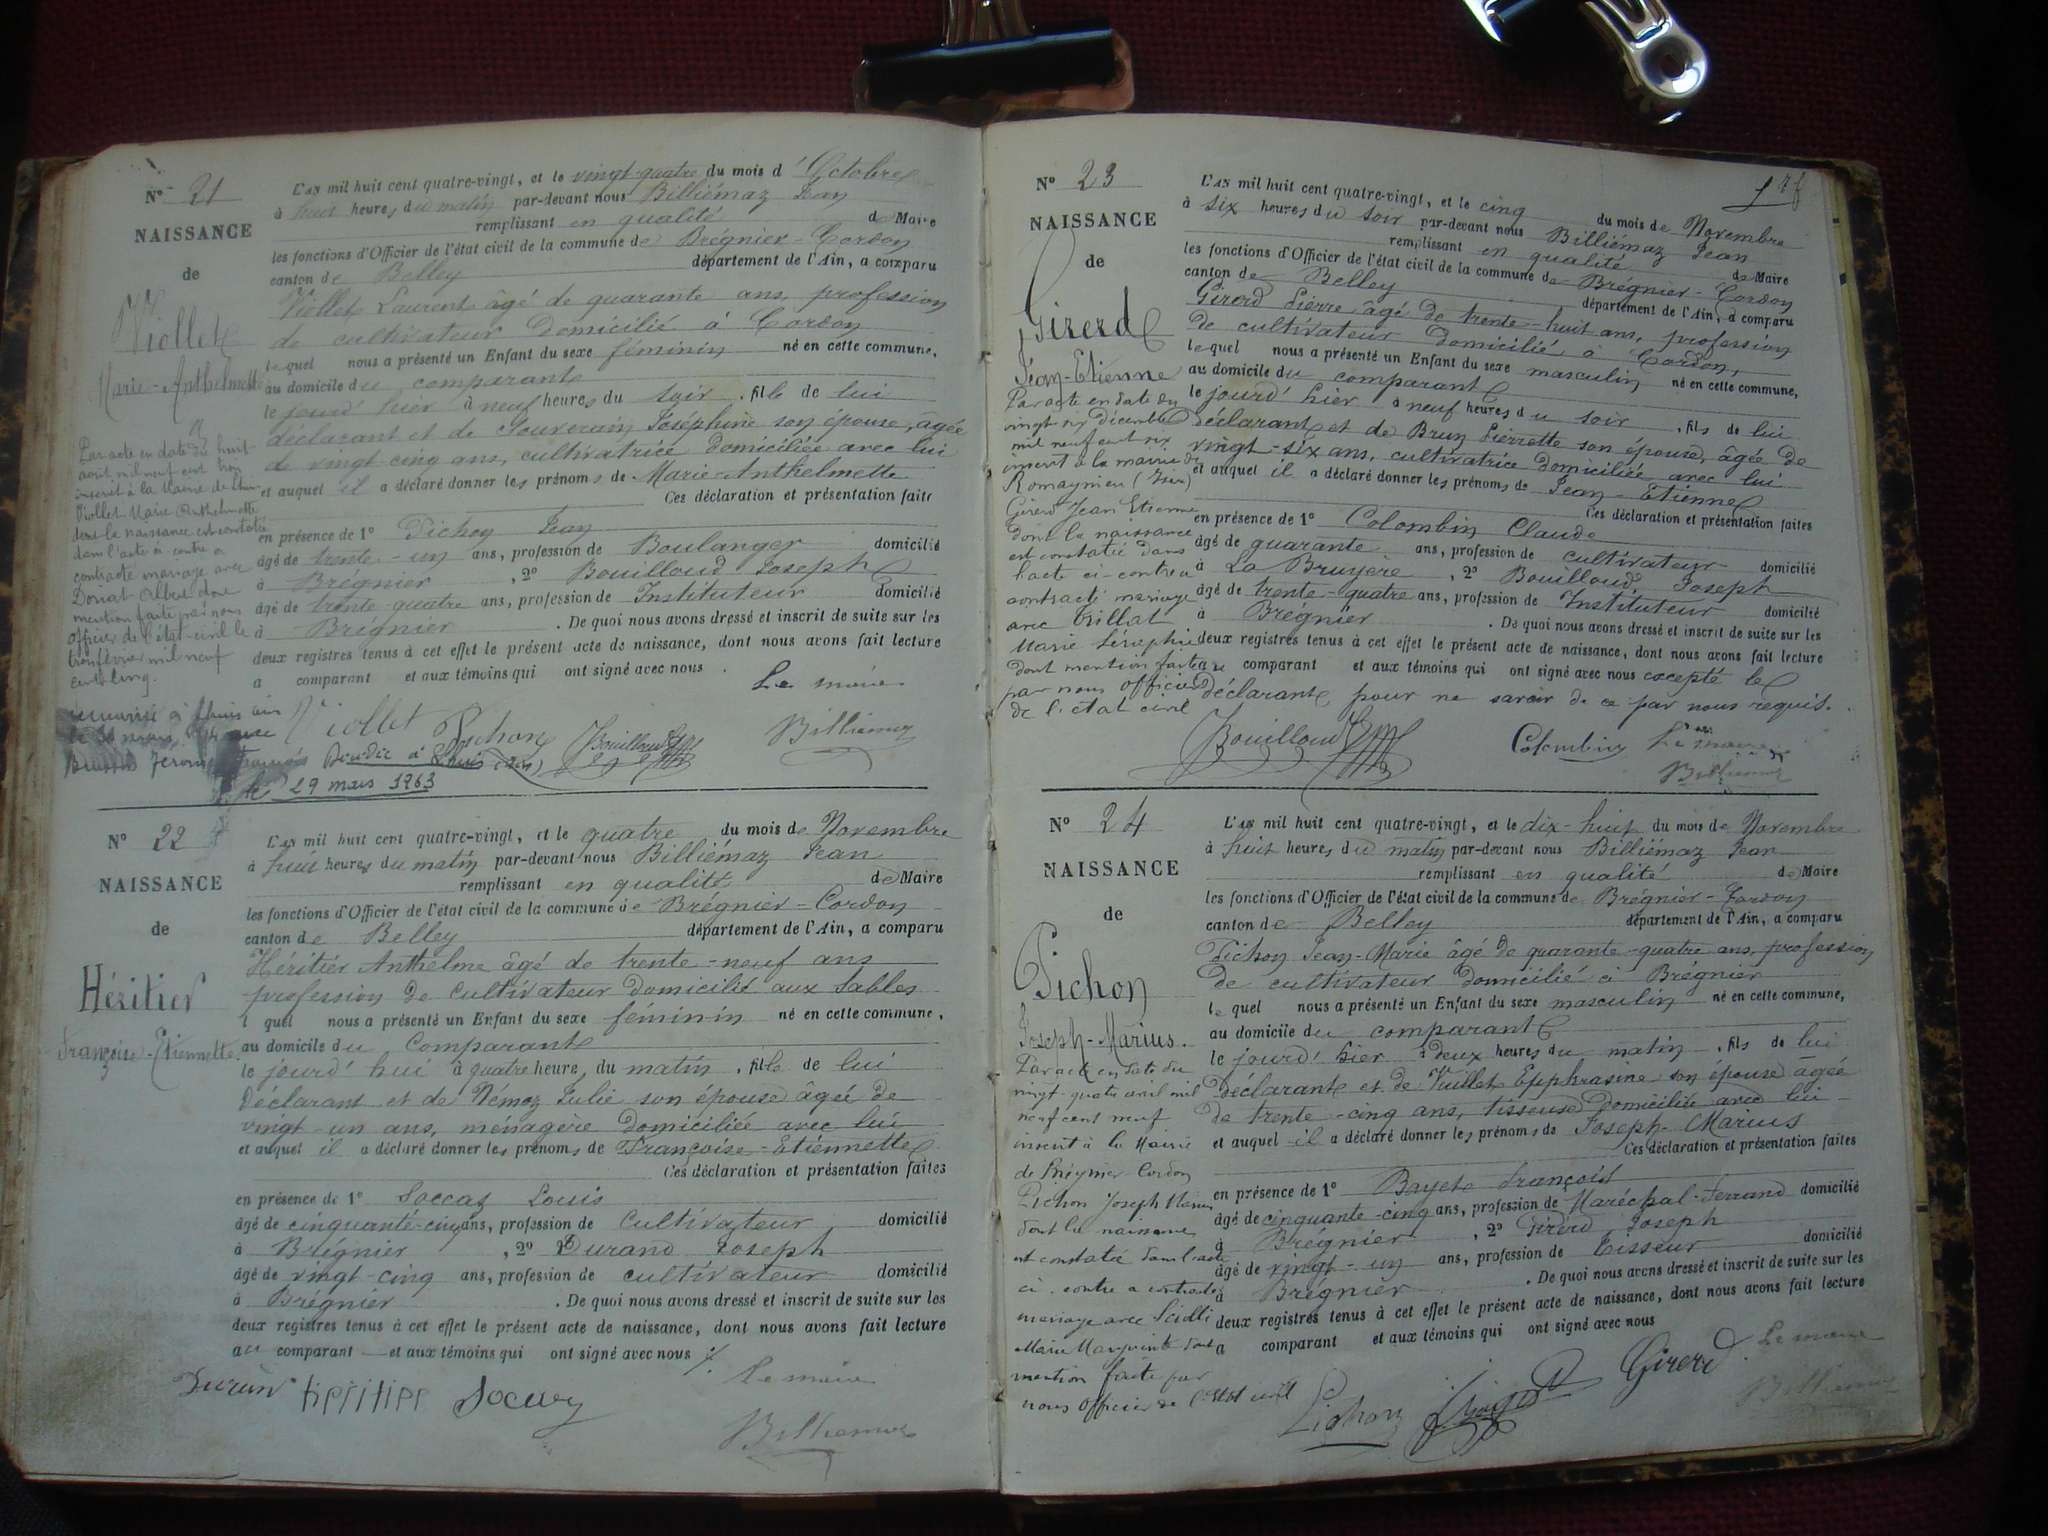 N° 21
NAISSANCE
de
Viollet
Marie-Anthelmette
L'an mil huit cent quatre-vingt, et le vingt-quatre du mois d'Octobre
à huit heures du matin par-devant nous Billiémaz Jean
remplissant en qualité de Maire
les fonctions d'Officier de l'état civil de la commune de Brégnier-Cordon
canton de Belley département de l'Ain, a comparu
Viollet Laurent âgé de quarante ans, profession
de cultivateur domicilié à Cordon
lequel nous a présenté un Enfant du sexe féminin né en cette commune,
au domicile du comparant
le jourd'hier à neuf heures du soir, fille de lui
déclarant et de Souverain Joséphine son épouse, âgée
de vingt-cinq ans, cultivatrice domiciliée avec lui
et auquel il a déclaré donner les prénoms de Marie-Anthelmette
Ces déclaration et présentation faites
en présence de 1° Pichon Jean
âgé de trente-un ans, profession de Boulanger domicilié
à Brégnier, 2° Bouilloud Joseph
âgé de trente-quatre ans, profession de Instituteur domicilié
à Brégnier. De quoi nous avons dressé et inscrit de suite sur les
deux registres tenus à cet effet le présent acte de naissance, dont nous avons fait lecture
a comparant et aux témoins qui ont signé avec nous.
Le maire
Viollet Pichon Bouilloud Billiémaz
Par acte en date du huit
août mil neuf cent trois
inscrit à la Mairie de
Viollet Marie Anthelmette
dont la naissance est constatée
dans l'acte ci-contre a
contracté mariage avec
Donat Albert dont
mention faite par nous
officier de l'état-civil le
mil neuf
cent cinq.
Décédée à
le 29 mars 1963
N° 22
NAISSANCE
de
Héritier
Françoise-Etiennette
L'an mil huit cent quatre-vingt, et le quatre du mois de Novembre
à huit heures du matin par-devant nous Billiémaz Jean
remplissant en qualité de Maire
les fonctions d'Officier de l'état civil de la commune de Brégnier-Cordon
canton de Belley département de l'Ain, a comparu
Héritier Anthelme âgé de trente-neuf ans
profession de cultivateur domicilié aux Sables
l quel nous a présenté un Enfant du sexe féminin né en cette commune,
au domicile du comparant
le jourd'hui à quatre heures du matin, fille de lui
déclarant et de Némoz Julie son épouse âgée de
vingt-un ans, ménagère domiciliée avec lui
et auquel il a déclaré donner les prénoms de Françoise-Etiennette
Ces déclaration et présentation faites
en présence de 1° Soccaz Louis
âgé de cinquante-cinq ans, profession de cultivateur domicilié
à Brégnier, 2° Durand Joseph
âgé de vingt-cinq ans, profession de cultivateur domicilié
à Brégnier. De quoi nous avons dressé et inscrit de suite sur les
deux registres tenus à cet effet le présent acte de naissance, dont nous avons fait lecture
au comparant et aux témoins qui ont signé avec nous
Le maire
Durand Héritier Billiémaz
N° 23
NAISSANCE
de
Girerd
Jean-Etienne
L'an mil huit cent quatre-vingt, et le cinq du mois de Novembre
à six heures du soir par-devant nous Billiémaz Jean
remplissant en qualité de Maire
les fonctions d'Officier de l'état civil de la commune de Brégnier-Cordon
canton de Belley département de l'Ain, a comparu
Girerd Pierre âgé de trente-huit ans, profession
de cultivateur domicilié à Cordon,
lequel nous a présenté un Enfant du sexe masculin né en cette commune,
au domicile du comparant
le jourd'hier à neuf heures du soir, fils de lui
déclarant et de Brun Pierrette son épouse, âgée de
vingt-six ans, cultivatrice domiciliée avec lui
et auquel il a déclaré donner les prénoms de Jean-Etienne
Ces déclaration et présentation faites
en présence de 1° Colombin Claude
âgé de quarante ans, profession de cultivateur domicilié
à La Bruyère, 2° Bouilloud, Joseph
âgé de trente-quatre ans, profession de Instituteur domicilié
à Brégnier. De quoi nous avons dressé et inscrit de suite sur les
deux registres tenus à cet effet le présent acte de naissance, dont nous avons fait lecture
au comparant et aux témoins qui ont signé avec nous excepté le
déclarant pour ne savoir de ce par nous requis.
Bouilloud Colombin Le maire
Billiémaz
Par acte en date du
vingt six Décembre
mil neuf cent six
inscrit à la mairie de
Romagnieu (Isère)
Girerd Jean Etienne
dont la naissance
est constatée dans
l'acte ci-contre a
contracté mariage
avec Trillat
Marie Séraphie
dont mention faite
par nous officier
de l'état civil
N° 24
NAISSANCE
de
Pichon
Joseph-Marius.
L'an mil huit cent quatre-vingt, et le dix-huit du mois de Novembre
à huit heures du matin par-devant nous Billiémaz Jean
remplissant en qualité de Maire
les fonctions d'Officier de l'état civil de la commune de Brégnier-Cordon
canton de Belley département de l'Ain, a comparu
Pichon Jean-Marie âgé de quarante-quatre ans, profession
de cultivateur domicilié à Brégnier
lequel nous a présenté un Enfant du sexe masculin né en cette commune,
au domicile du comparant
le jourd'hier à deux heures du matin, fils de lui
déclarant et de Vuillet Epphrasine son épouse âgée
de trente-cinq ans, tisseuse domiciliée avec lui
et auquel il a déclaré donner les prénoms de Joseph-Marius
Ces déclaration et présentation faites
en présence de 1° Bayet François
âgé de cinquante-cinq ans, profession de Maréchal-Ferrand domicilié
à Brégnier, 2° Girerd Joseph
âgé de vingt-un ans, profession de Tisseur domicilié
à Brégnier. De quoi nous avons dressé et inscrit de suite sur les
deux registres tenus à cet effet le présent acte de naissance, dont nous avons fait lecture
a comparant et aux témoins qui ont signé avec nous
Pichon Girerd Le maire
Billiémaz
Par acte en date du
vingt-quatre avril mil
neuf cent neuf
inscrit à la Mairie
de Brégnier Cordon
Pichon Joseph Marius
dont la naissance
est constatée dans l'acte
ci-contre a contracté
mariage avec
Marie Marguerite dont
mention faite par
nous officier de l'état civil